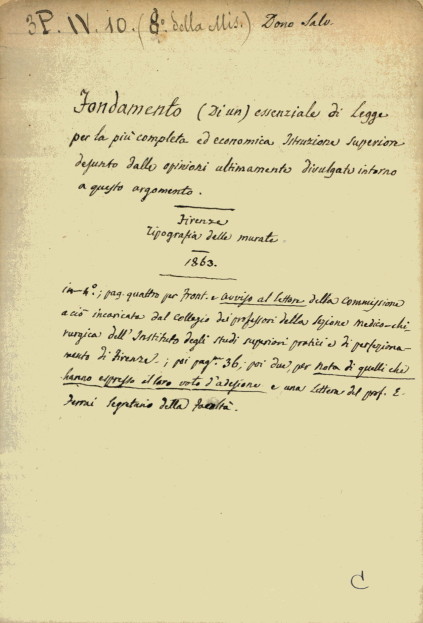 3P. IV. 10. (8º della Mis.) Dono Salv.
Fondamento (Di un) essenziale di Legge
per la più completa ed economica Istruzione Superiore
desunto dalle opinioni ultimamente divulgate intorno
a questo argomento.
Firenze
Tipografia delle murate
1863.
in-4º; pag. quattro per front. e avviso al lettore della Commissione
a ciò incaricata dal collegio dei professori della sezione medico-chi-
rurgica dell'Instituto degli studi superiori pratici e di perfeziona-
mento di Firenze -; poi pagᵉ. 36, poi due, per nota di quelli che
hanno espresso il loro voto d'adesione e una lettera del prof. E.
Segretario della facoltà.
C